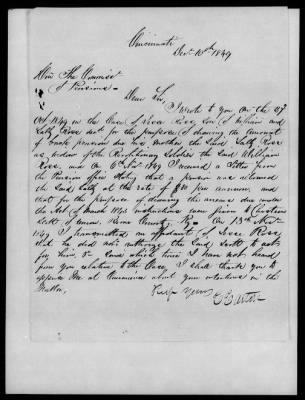 Cincinnati
Decr 10th 1849
Hon The Commisr
of Pensions
Dear Sir,
I wrote to you on the 27
Oct 1849 in the Case of Jesse Rose Son of William and
Sally Rose decd for the purpose of drawing the amount
of back pension due his mother the said Sally Rose
as widow of the Revolutionary Soldier the said William
Rose, and on 6th Nov 1849 I received a letter from
the Pension office stating that a pension was allowed
the said Sally at the rate of $80 per annum, and
that for the purpose of drawing the arrears due under
the Act of March 1843 instructions were given to Christian
Scott of Union, Boone County, Ky. On 13th Novr
1849 I transmitted an affidavit of Jesse Rose
that he did not authorize the said Scott to act
for him, & and since which time I have not heard
from you relative to the Case, I shall thank you to
apprise me at Cincinnati about your intentions in the
Matter,
Resp Yours